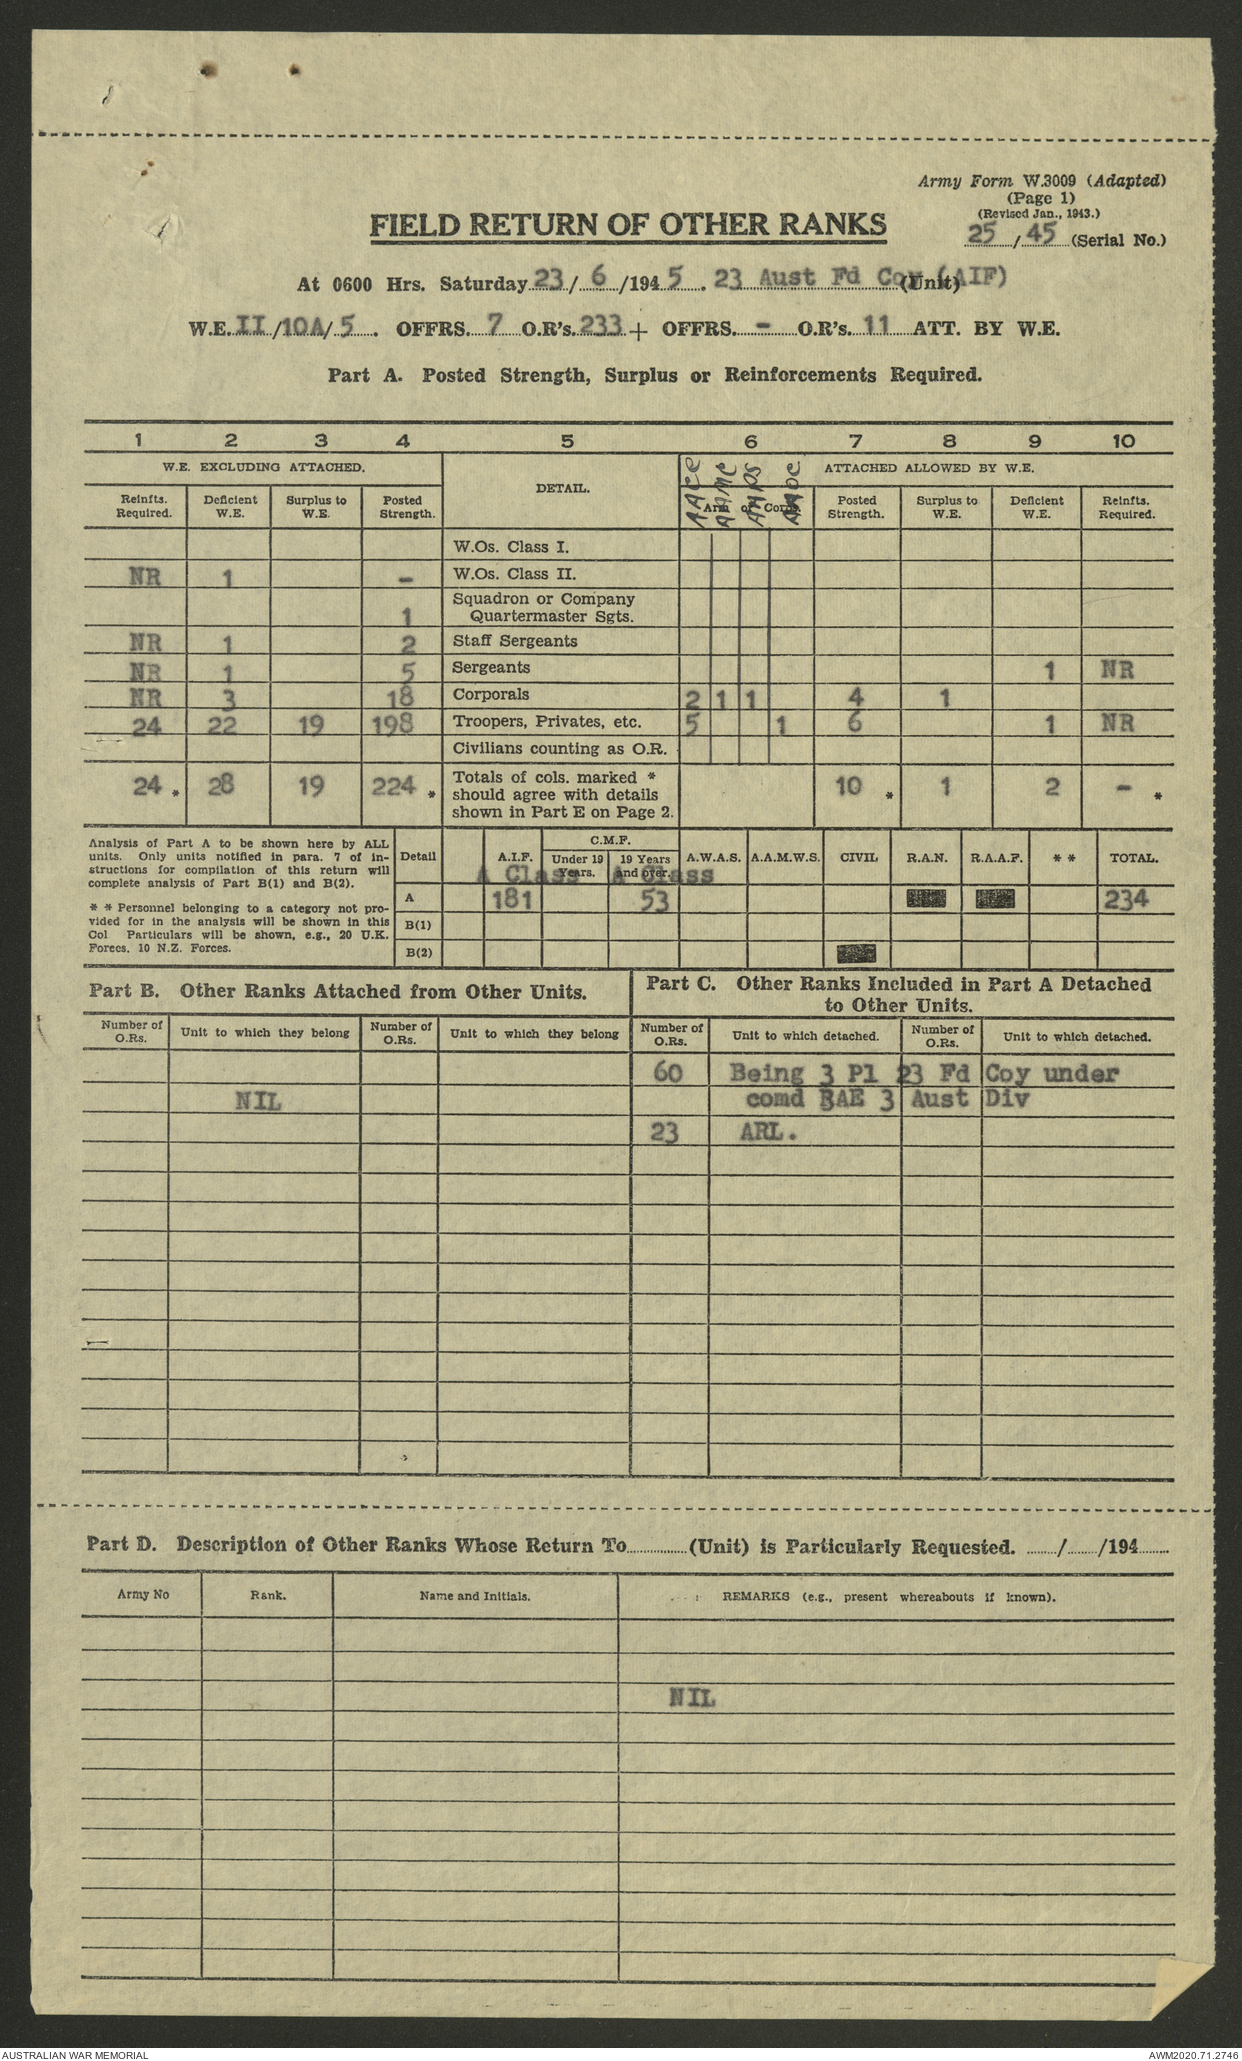 Army Form W.3009 (Adapted)
(Page 1)
(Revised Jan., 1943.)
25 / 45 (Serial No.)
FIELD RETURN OF OTHER RANKS
At 0600 Hrs. Saturday 23 / 6 /194 5 . 23 Aust Fd Coy (AIF) (Unit)
W.E. II /10A/ 5 . OFFRS. 7 O.R's. 233 + OFFRS. – O.R's. 11 ATT. BY W.E.
Part A. Posted Strength, Surplus or Reinforcements Required.
1 2 3 4 5 6 7 8 9 10
W.E. EXCLUDING ATTACHED. DETAIL. AACC AAMC AAPS AAOC ATTACHED ALLOWED BY W.E.
Reinfts. Required. Deficient W.E. Surplus to W.E. Posted Strength. Arm or Corps. Posted Strength. Surplus to W.E. Deficient W.E. Reinfts. Required.
W.Os. Class I.
NR 1 – W.Os. Class II.
1 Squadron or Company Quartermaster Sgts.
NR 1 2 Staff Sergeants
NR 1 5 Sergeants 1 NR
NR 3 18 Corporals 2 1 1 4 1
24 22 19 198 Troopers, Privates, etc. 5 1 6 1 NR
Civilians counting as O.R.
24 * 28 19 224 * Totals of cols. marked * should agree with details shown in Part E on Page 2. 10 * 1 2 – *
Analysis of Part A to be shown here by ALL
units. Only units notified in para. 7 of in-
structions for compilation of this return will
complete analysis of Part B(1) and B(2).
* * Personnel belonging to a category not pro-
vided for in the analysis will be shown in this
Col Particulars will be shown, e.g., 20 U.K.
Forces. 10 N.Z. Forces.
Detail A.I.F. C.M.F. Under 19 Years. 19 Years and over. A.W.A.S. A.A.M.W.S. CIVIL R.A.N. R.A.A.F. * * TOTAL.
A Class A Class
A 181 53 234
B(1)
B(2)
Part B. Other Ranks Attached from Other Units.
Number of O.Rs. Unit to which they belong Number of O.Rs. Unit to which they belong
NIL
Part C. Other Ranks Included in Part A Detached
to Other Units.
Number of O.Rs. Unit to which detached. Number of O.Rs. Unit to which detached.
60 Being 3 Pl 23 Fd Coy under
comd RAE 3 Aust Div
23 ARL.
Part D. Description of Other Ranks Whose Return To............(Unit) is Particularly Requested. ....../....../194......
Army No Rank. Name and Initials. REMARKS (e.g., present whereabouts if known).
NIL
AUSTRALIAN WAR MEMORIAL
AWM2020.71.2746